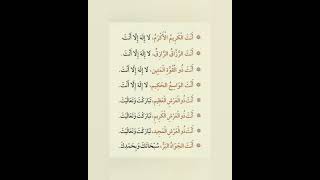 أَنْتَ الْكَرِيمُ الْأَكْرَمُ، لَا إِلٰهَ إِلَّا أَنْتَ.
أَنْتَ الرَّزَّاقُ الرَّازِقُ، لَا إِلٰهَ إِلَّا أَنْتَ.
أَنْتَ ذُو الْقُوَّةِ الْمَتِينُ، لَا إِلٰهَ إِلَّا أَنْتَ.
أَنْتَ الْوَاسِعُ الْحَكِيمُ، لَا إِلٰهَ إِلَّا أَنْتَ.
أَنْتَ ذُو الْعَرْشِ الْعَظِيمِ، تَبَارَكْتَ وَتَعَالَيْتَ.
أَنْتَ ذُو الْعَرْشِ الْكَرِيمِ، تَبَارَكْتَ وَتَعَالَيْتَ.
أَنْتَ ذُو الْعَرْشِ الْمَجِيدِ، تَبَارَكْتَ وَتَعَالَيْتَ.
أَنْتَ الْجَوَادُ الْبَرُّ، سُبْحَانَكَ وَبِحَمْدِكَ.